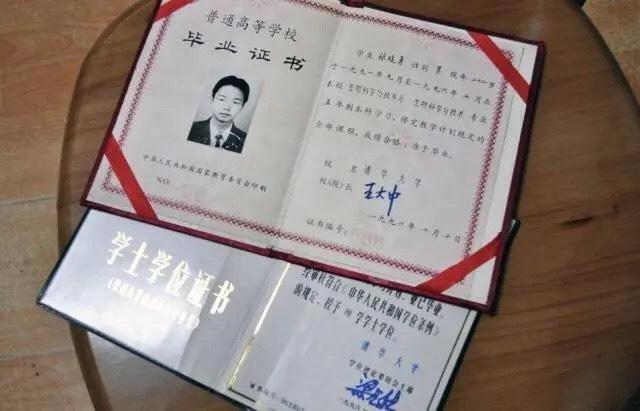 普通高等学校
毕业证书
中华人民共和国国家教育委员会印制
NO.
学生 张晓勇 性别 男 现年 二十二 岁
于一九九一年九月至一九九六年七月在
本校 生物科学与技术系 生物科学与技术 专业
五年制本科学习，修完教学计划规定的
全部课程，成绩合格，准予毕业。
校 名 清华大学
校(院)长 王大中
证书编号：
一九九六年七月十日
学士学位证书
经审核符合《中华人民共和国学位条例》
的规定，授予 理 学学士学位。
清华大学
学位评定委员会主席